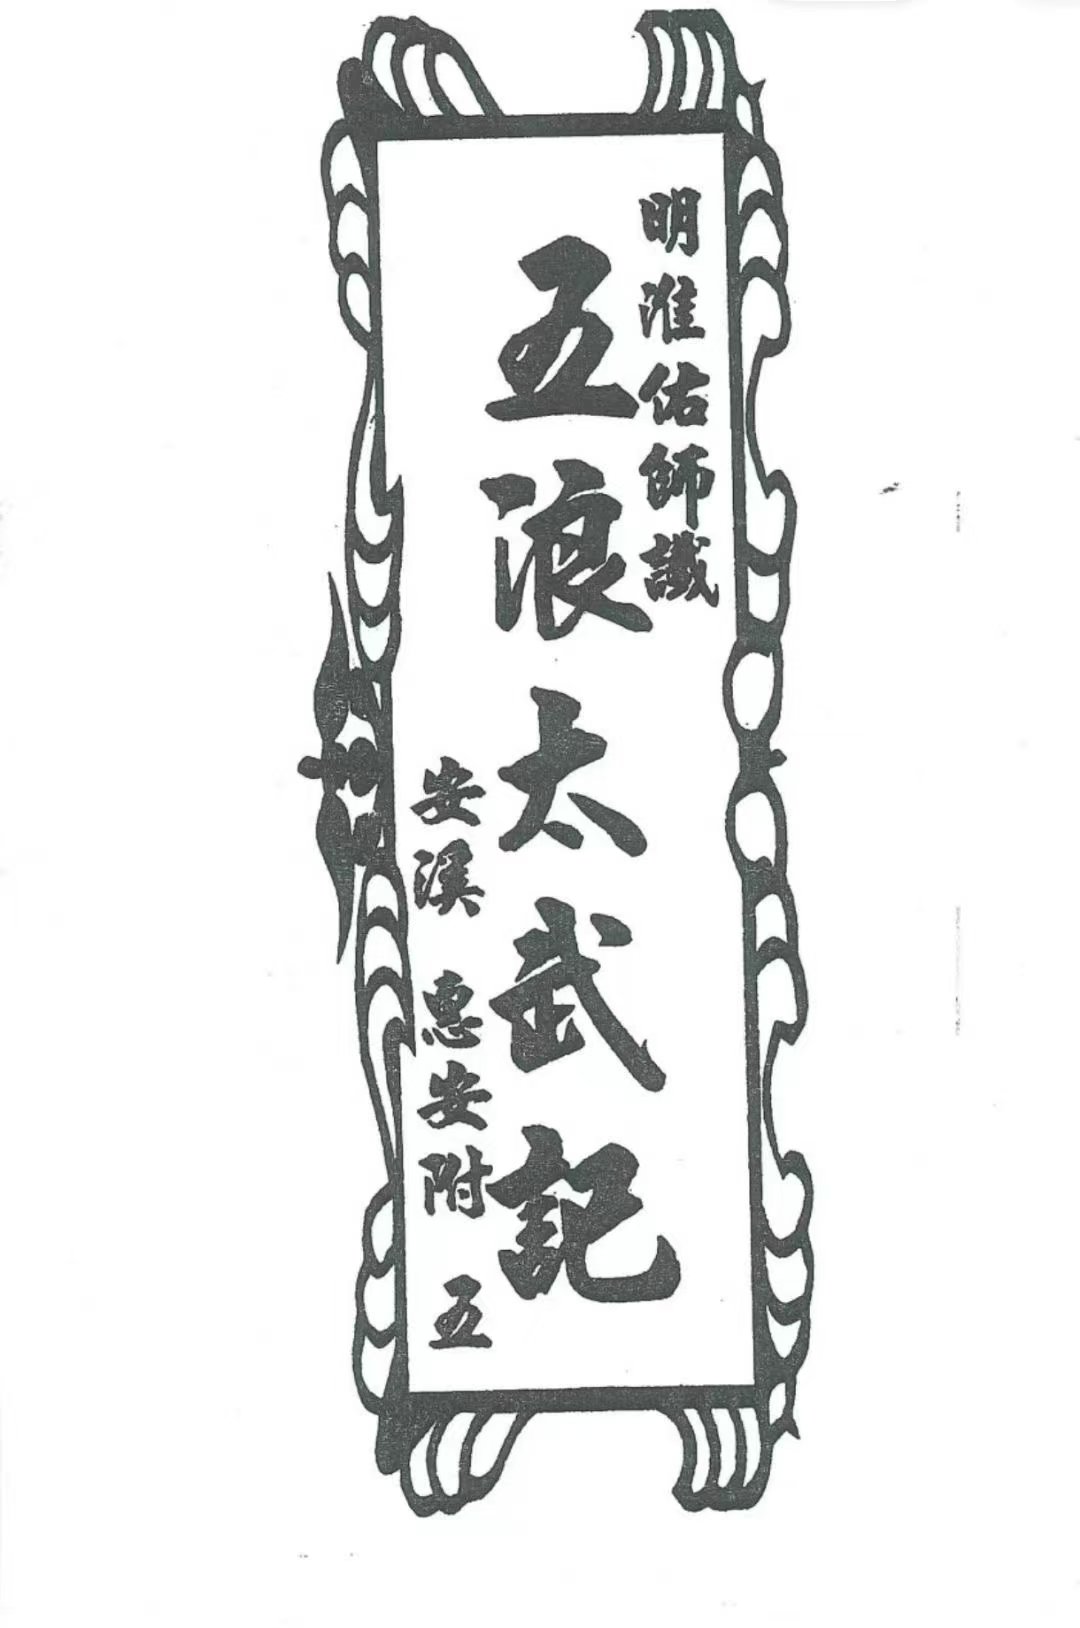 明淮佑師讖
五浪太武記
安溪 惠安附 五